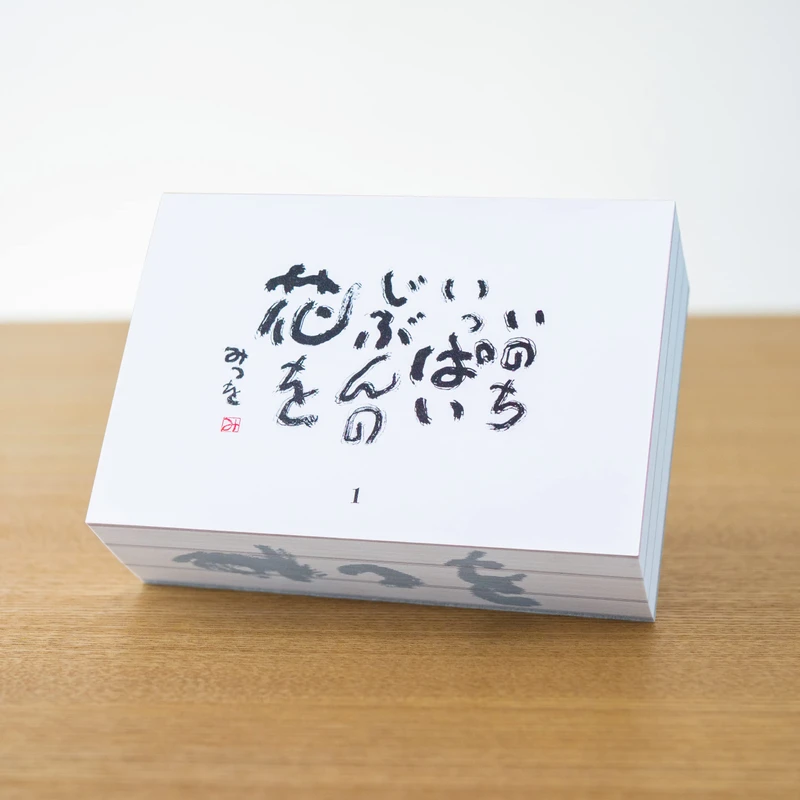 いのち
いっぱい
じぶんの
花を
みつを
み
1
みつを